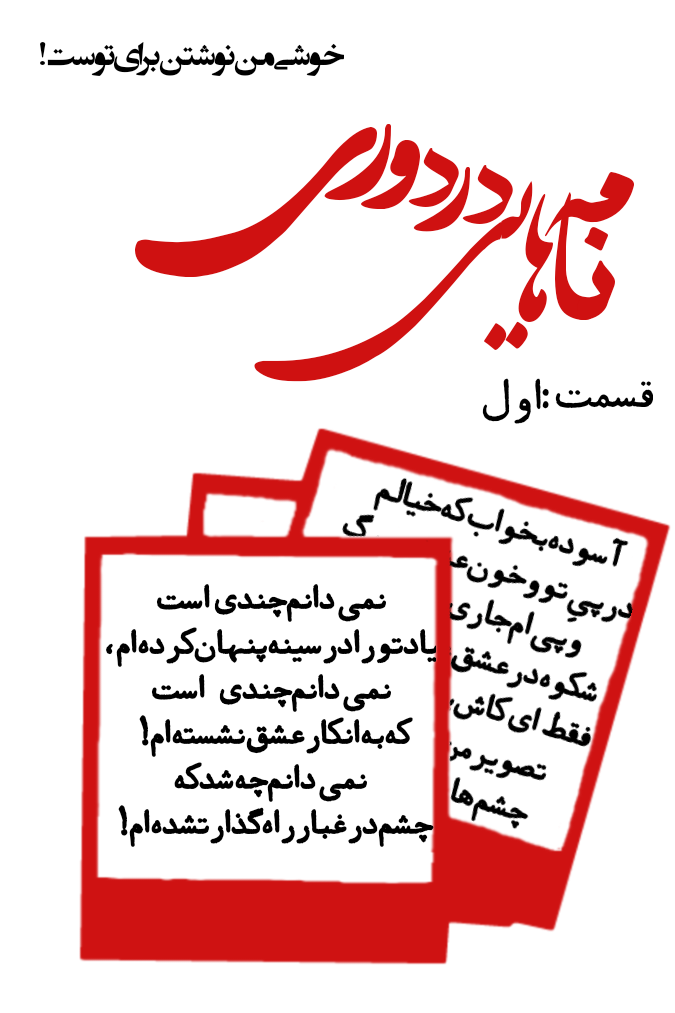 خوشی من نوشتن برای توست!
نامه هایی در دوری
قسمت: اول
آسوده بخواب که خیالم
در پیِ تو و خون
و پی ام جاری
شکوه در عشق
فقط ای کاش
تصویر
چشم ها
نمی دانم چندی است
یاد تو را در سینه پنهان کرده ام،
نمی دانم چندی است
که به انکار عشق نشسته ام!
نمی دانم چه شد که
چشم در غبار راه گذارت شده ام!